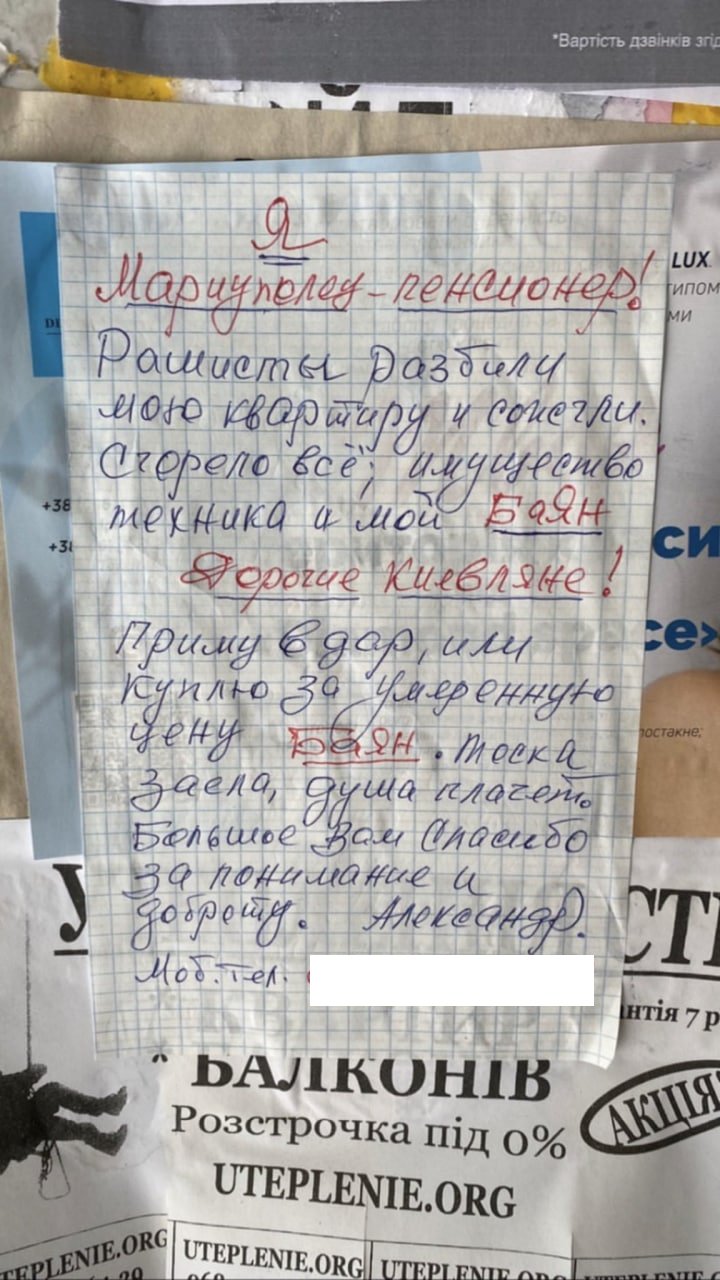 *Вартість дзвінків згід
Я
Мариуполец-пенсионер!
Рашисты разбили
мою квартиру и сожгли.
Сгорело всё; имущество
техника и мой Баян
Дорогие киевляне!
Приму в дар, или
куплю за умеренную
цену Баян. Тоска
заела, душа плачет.
Большое Вам Спасибо
за понимание и
доброту. Александр.
Моб. тел.
LUX
ипом
ми
+38
+38
си
се»
постакне;
У
СТ
нтія 7 р
БАЛКОНІВ
АКЦІЯ
Розстрочка під 0%
UTEPLENIE.ORG
TEPLENIE.ORG
UTEPLENIE.ORG
UTEPLENIE.ORG